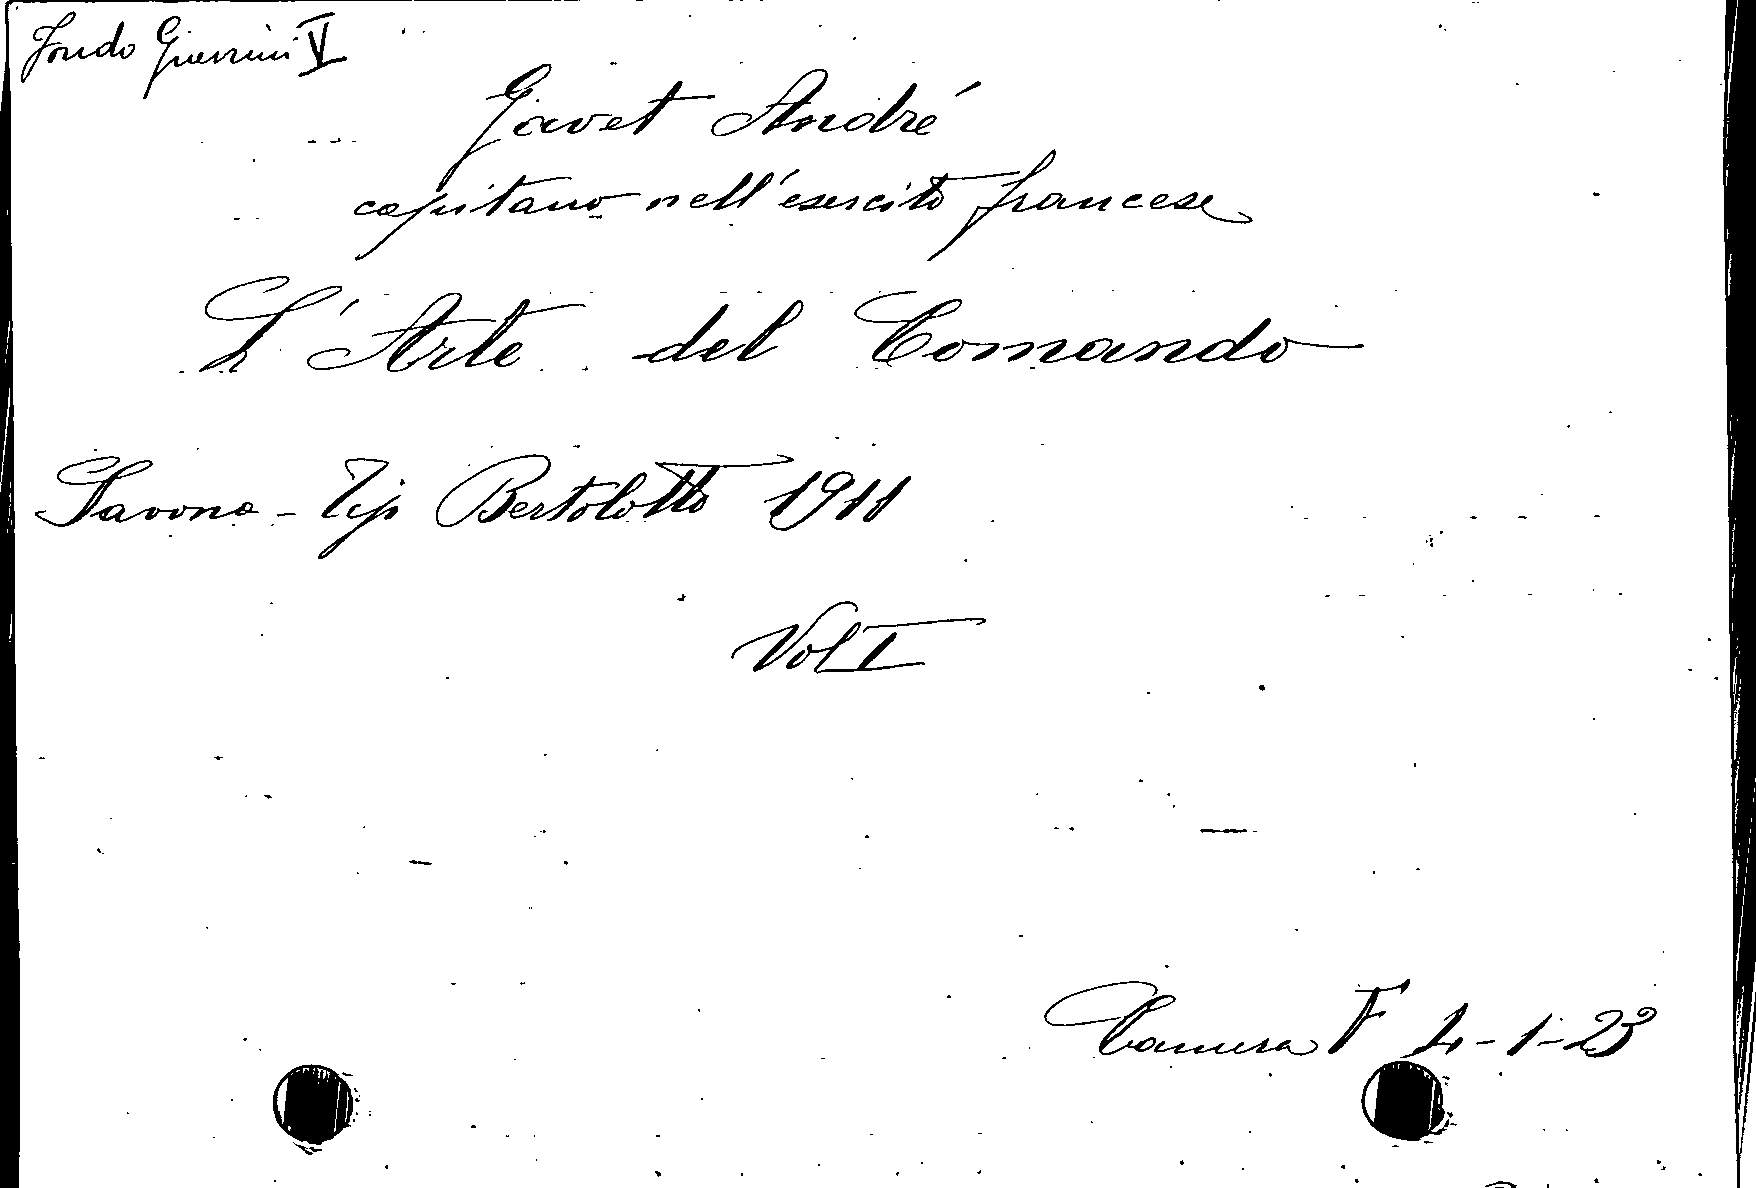 Fondo Guerrini V
Gavet André
capitano nell'esercito francese
L'Arte del Comando
Savona - Tip Bertolotto 1911
Vol I
Camera F 4-1-23